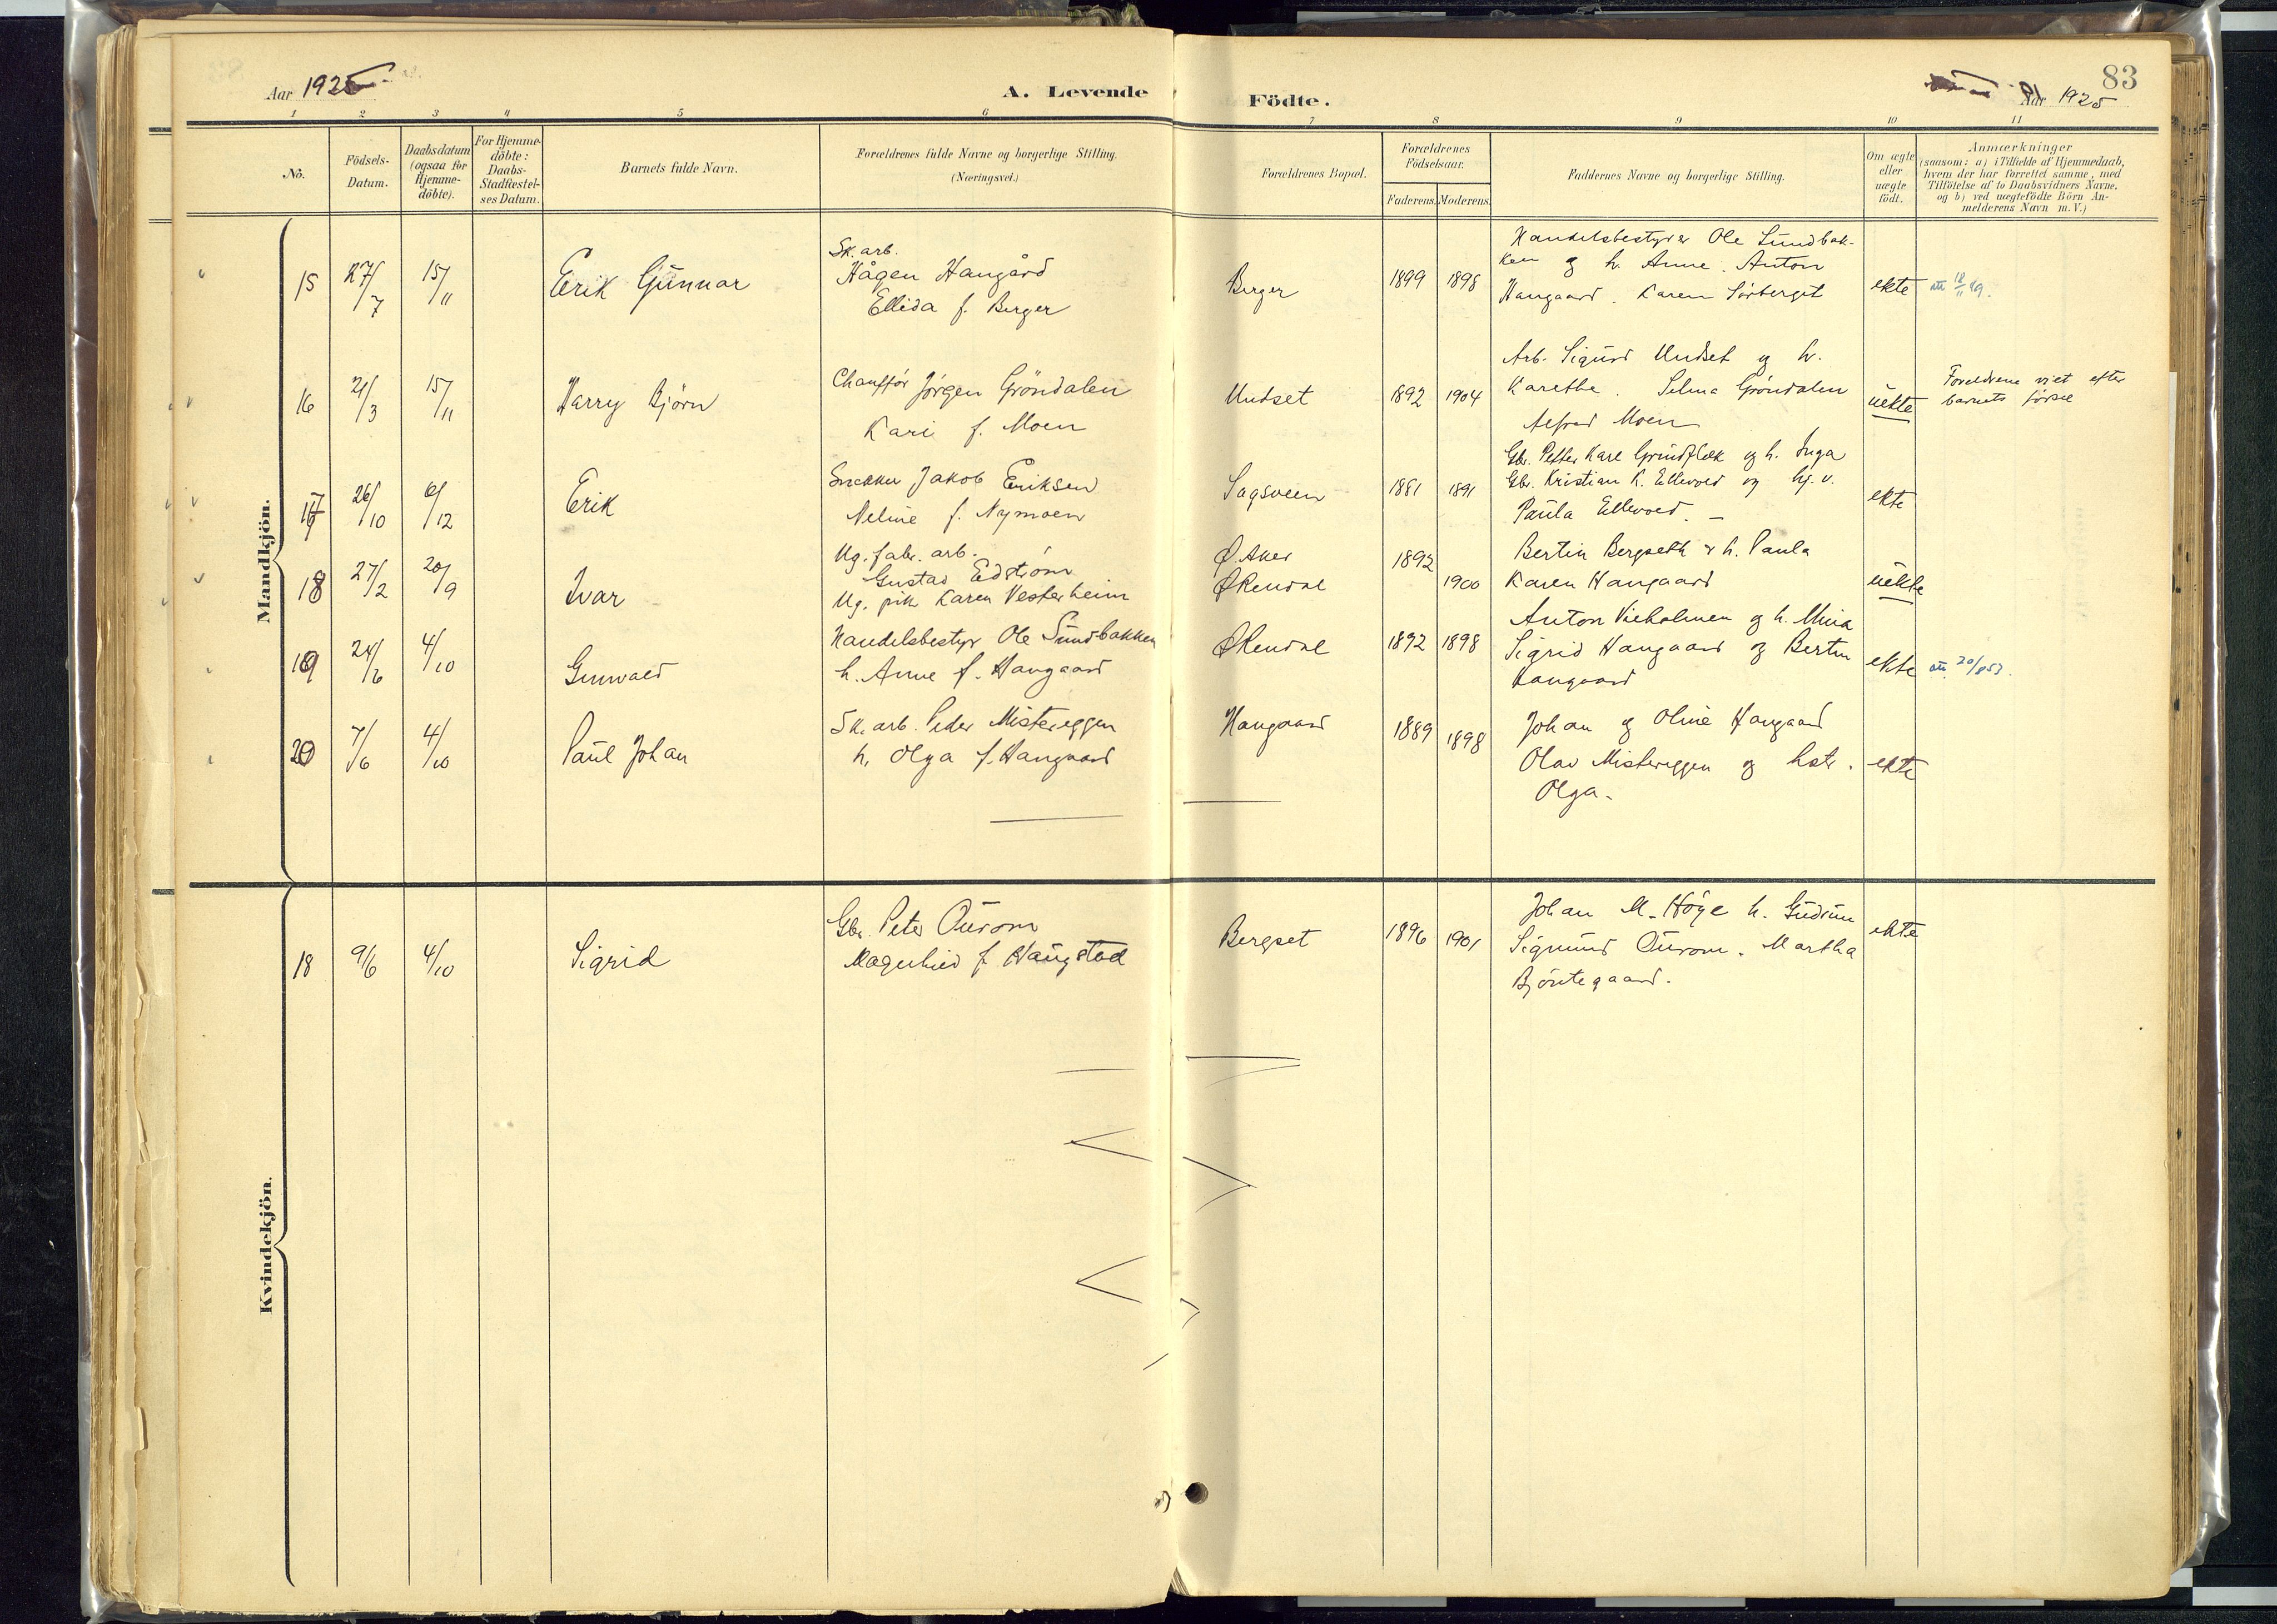 83
Aar 1925
A. Levende
Födte.
Aar 1925
1 2 3 4 5 6 7 8 9 10 11
No.
Födsels-
Datum.
Daabsdatum
(ogsaa for
Hjemme-
döbte).
For Hjemme-
döbte:
Daabs-
Stadfæstel-
ses Datum.
Barnets fulde Navn.
Forældrenes fulde Navne og borgerlige Stilling.
(Næringsvei.)
Forældrenes Bopæl.
Forældrenes
Födselsaar.
Faderens. Moderens.
Faddernes Navne og borgerlige Stilling.
Om ægte
eller
uægte
födt.
Anmærkninger
(saasom: a) i Tilfælde af Hjemmedaab,
hvem der har forrettet samme, med
Tilföielse af to Daabsvidners Navne.
og b) ved uægtefödte Börn An-
melderens Navn m.V.)
Mandkjön.
15 27/7 15/11 Erik Gunnar
Sk. arb.
Hågen Haugård
Ellida f. Berger
Berger 1899 1898
Handelsbestyrer Ole Sundbak-
ken og h. Anne. Anton
Haugaard. Karen Sörberget
ekte att 18/11 49.
16 21/3 15/11 Harry Björn
Chauffør Jørgen Gröndalen
Kari f. Moen
Undset 1892 1904
Arb. Sigurd Undset og h.
Karethe. Selma Gröndalen
Alfred Moen
uekte
Foreldrene viet efter
barnets fødsel
17 26/10 6/12 Erik
Snekker Jakob Eriksen
Neline f. Nymoen
Sagsveen 1881 1891
Gbr. Petter Kare Grindflek og h. Inga
Gbr. Kristian K. Ellevold og hj. v.
Paula Ellevold. -
ekte
18 27/2 20/9 Ivar
Ug. fabr. arb.
Gustav Edström
Ug. pike Karen Vesterheim
Ø. Aker 1892
ØRendal 1900
Bertin Bergseth & h. Paula
Karen Haugaard
uekte
19 24/6 4/10 Gunvald
Handelsbestyr Ole Sundbakken
h. Anne f. Haugaard
ØRendal 1892 1898
Anton Vieholmen og h. Mina
Sigrid Haugaard og Bertin
Haugaard
ekte att. 20/8 53.
20 7/6 4/10 Paul Johan
Sk. arb. Peder Mistereggen
h. Olga f. Haugaard
Haugaard 1889 1898
Johan og Oline Haugaard
Olav Mistereggen og hstr.
Olga -
ekte
Kvindekjön.
18 9/6 4/10 Sigrid
Gbr. Peter Øurom
Magnhild f. Haugstad
Bergset 1896 1901
Johan M. Höye h. Gudrun
Sigmund Øurom. Martha
Bjöntegaard.
ekte